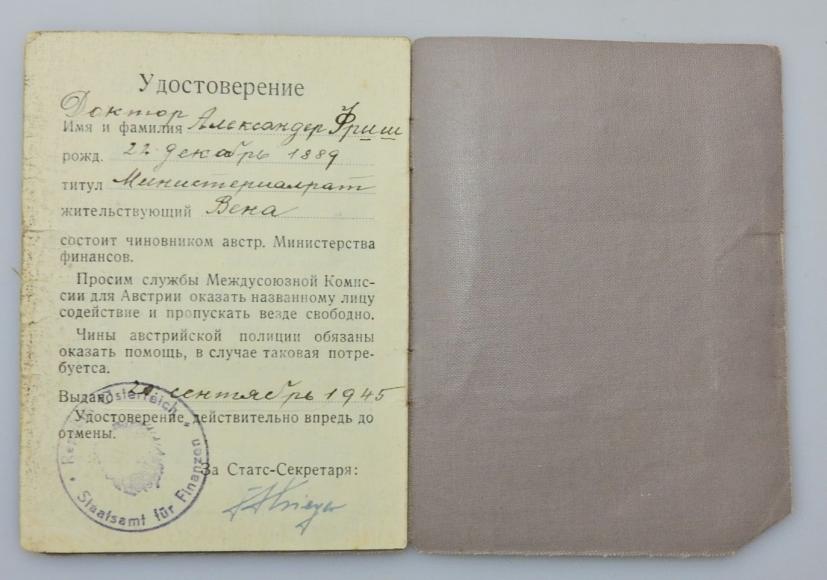 Удостоверение
Доктор
Имя и фамилия Александер Фриш
рожд. 22 декабрь 1889
титул Министериалрат
жительствующий Вена
состоит чиновником австр. Министерства
финансов.
Просим службы Междусоюзной Комис-
сии для Австрии оказать названному лицу
содействие и пропускать везде свободно.
Чины австрийской полиции обязаны
оказать помощь, в случае таковая потре-
буется.
Выдано сентябрь 1945
Удостоверение действительно впредь до
отмены.
За Статс-Секретаря:
Republik Österreich
Staatsamt für Finanzen